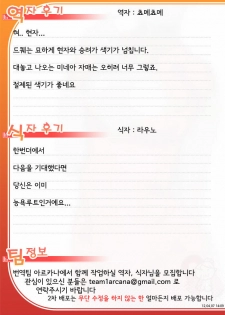 역자 후기
역자 : 쵸메쵸메
혀.. 현자...
드퀘는 요하게 현자와 승려가 색기가 넘칩니다.
대놓고 나오는 미네아 자매는 오히려 너무 그렇죠.
절제된 색기가 좋네요
식자 후기
식자 : 라우노
한번더에서
다음을 기대했다면
당신은 이미
능욕루트인거에요...
팀 정보
번역팀 아르카나에서 함께 작업하실 역자, 식자님을 모집합니다
관심이 있으신 분들은 team1arcana@gmail.com 로
연락주시기 바랍니다
2차 배포는 무단 수정을 하지 않는 한 얼마든지 배포 가능합니다